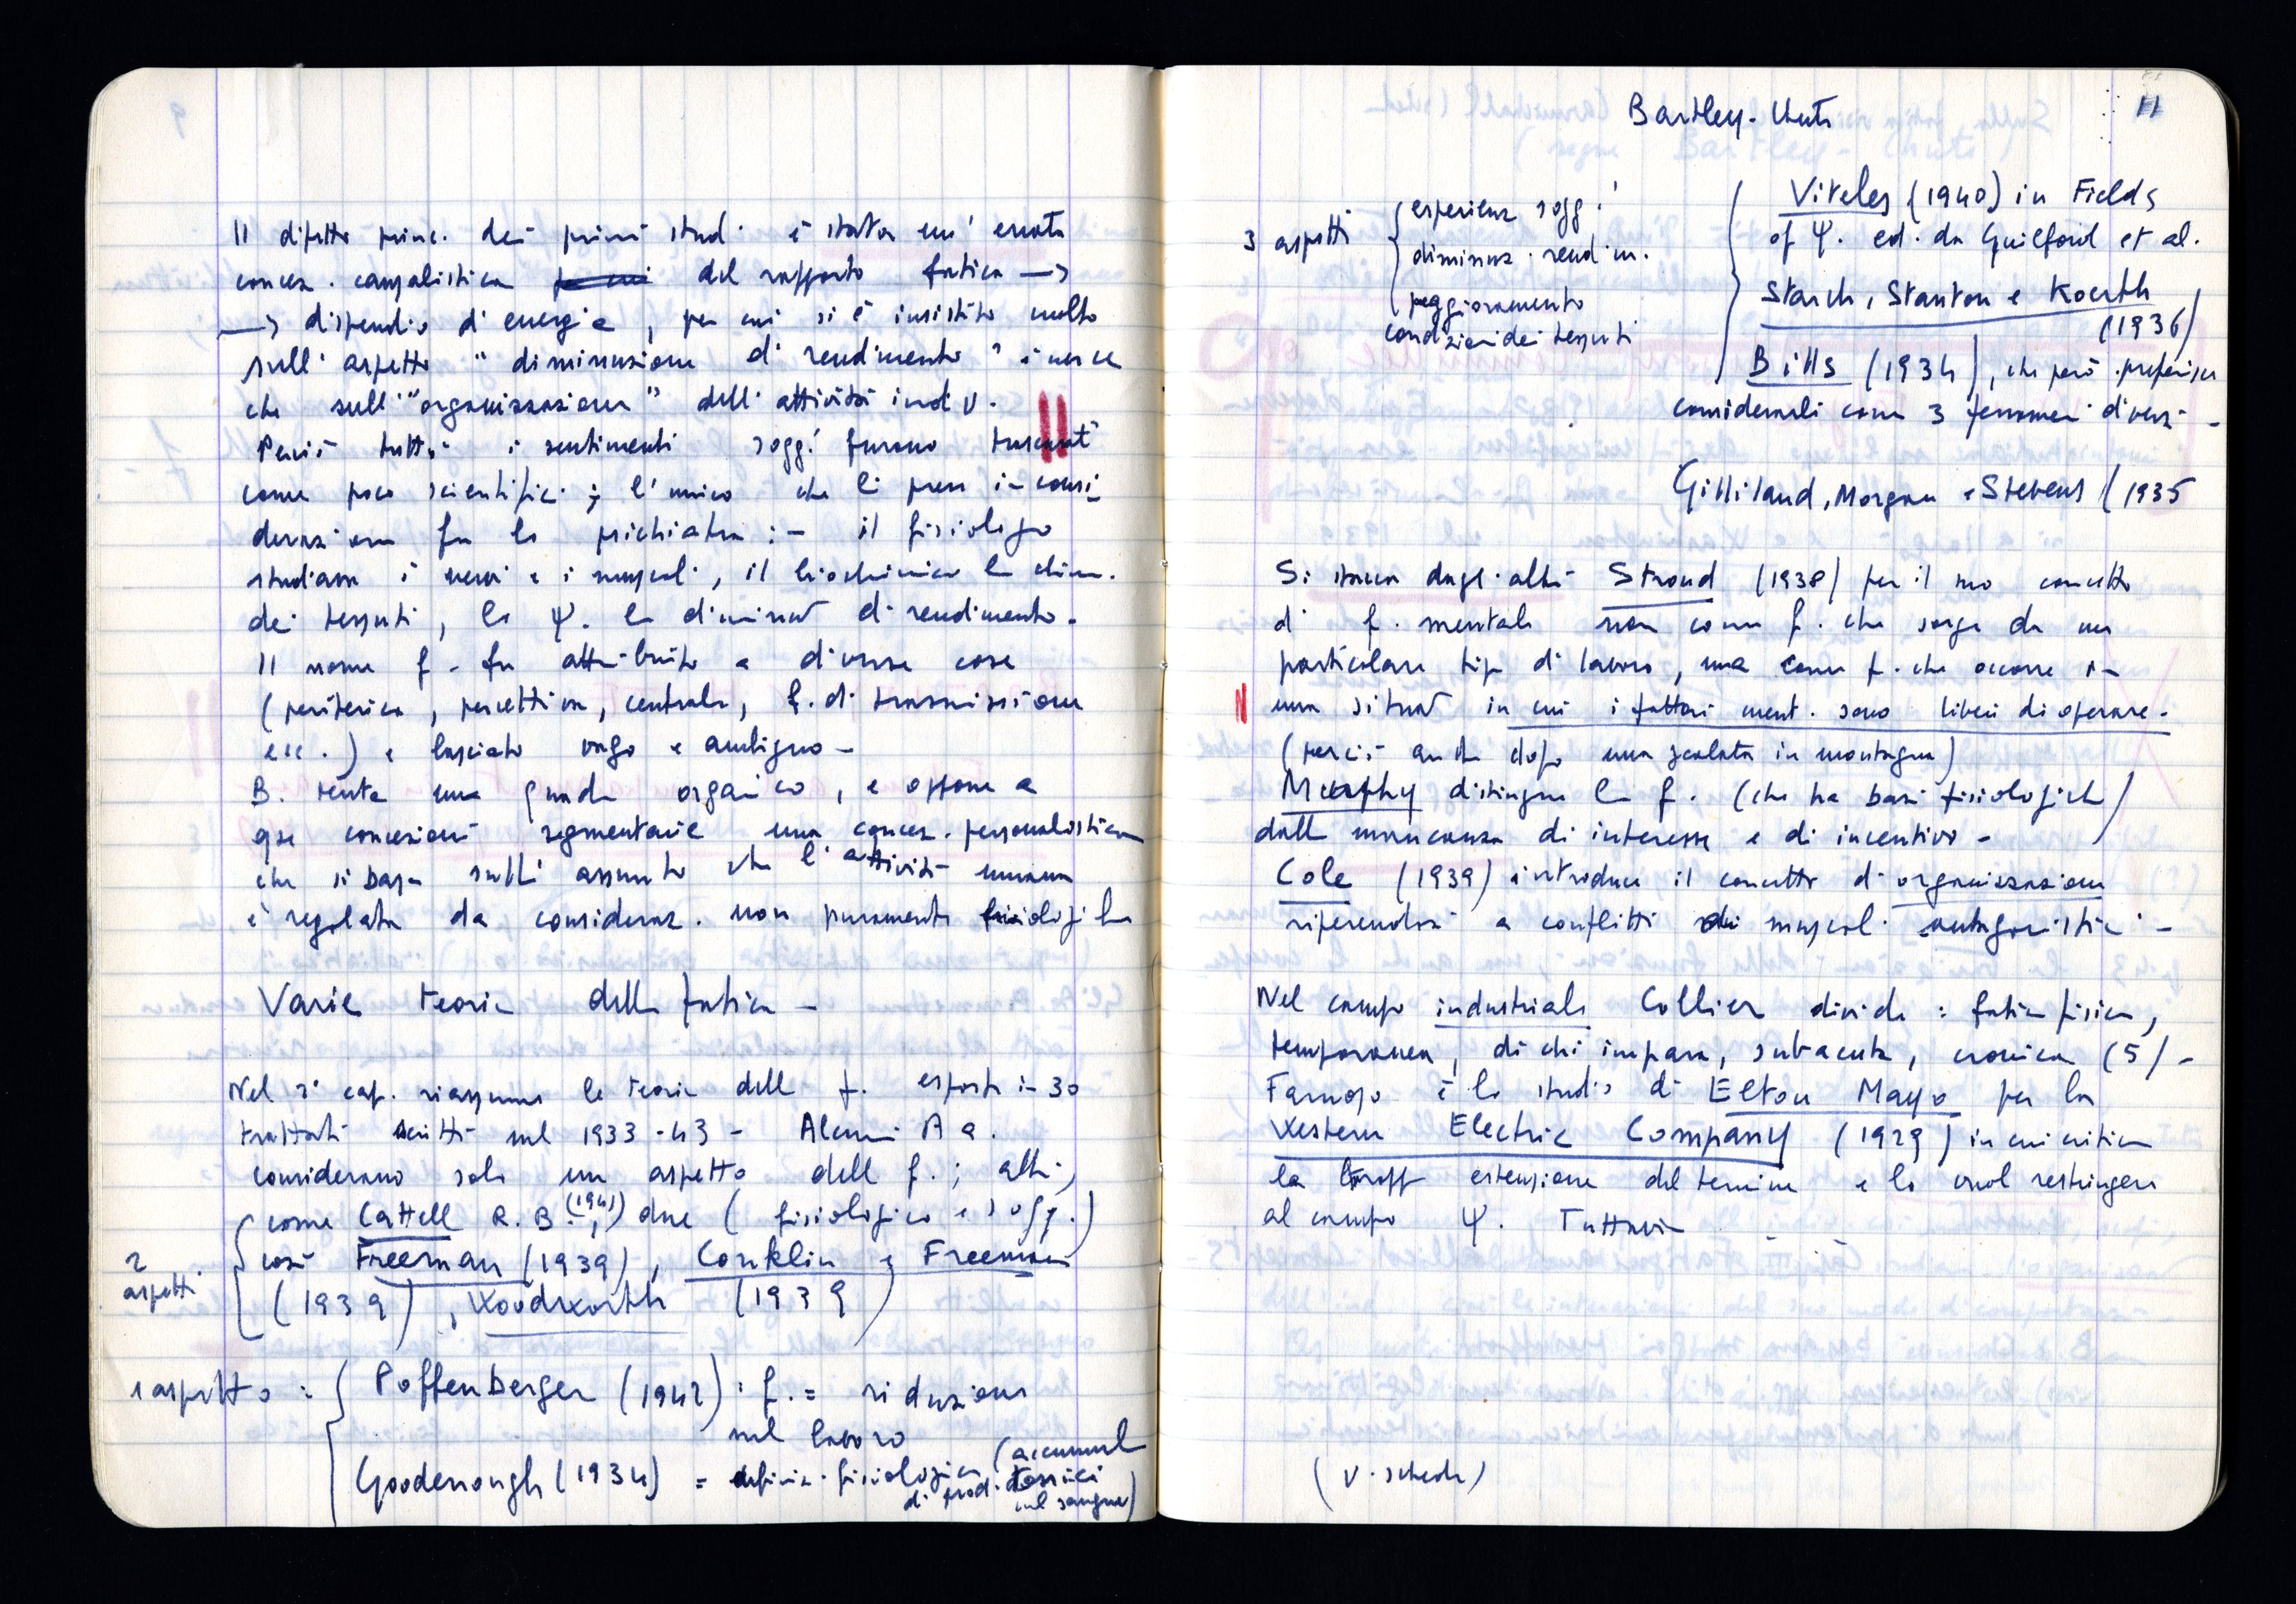 Il difetto princ. dei primi studi è stata un' errata
concez. causalistica del rapporto fatica →
→ dispendio d'energie, per cui si è insistito molto
sull'aspetto "diminuzione di rendimento" invece
che sull'"organizzazione" dell'attività indiv.
Perciò tutti i sentimenti sogg. furono trascurati
come poco scientifici; l'unico che li prese in consi
derazione fu lo psichiatra: - il fisiologo
studiava i nervi e i muscoli, il biochimico la chim.
dei tessuti, lo ψ. la diminuz di rendimento.
Il nome f. fu attribuito a diverse cose
(periferica, percettiva, centrale, f. di trasmissione
ecc.) e lasciato vago e ambiguo -
B. tenta una quadro organico, e oppone a
qse concezioni segmentarie una concez. personalistica
che si basa sull'assunto che l'attività umana
è regolata da consideraz. non puramente fisiologiche
Varie teorie della fatica -
Nel 3° cap. riassume le teorie della f. esposte in 30
trattati scritti nel 1933-43 - Alcuni AA.
considerano solo un aspetto della f.; altri,
come Cattell R. B. (1941) due (fisiologico e sogg.)
così Freeman (1939), Conklin e Freeman
2 aspetti
(1939), Woodworth (1939)
1 aspetto: Poffenberger (1942): f. = riduzione
nel lavoro
Goodenough (1934) = definiz. fisiologica (accumul
di prod. tossici
nel sangue)
Bartley - Chute
11
3 aspetti
esperienz sogg.
diminuz. rendim.
peggioramento
condizioni dei tessuti
Viteles (1940) in Fields
of ψ. ed. da Guilford et al.
Starch, Stanton e Koerth
(1936)
Bills (1934), che però preferisce
considerarli come 3 fenomeni diversi -
Gilliland, Morgan e Stevens (1935
Si stacca dagli altri Stroud (1938) per il suo concetto
di f. mentale non come f. che sorge da un
particolare tipo di lavoro, ma come f. che occorre in
una situaz in cui i fattori ment. sono liberi di operare -
(perciò anche dopo una scalata in montagna)
Murphy distingue la f. (che ha basi fisiologiche)
dalla mancanza di interesse e di incentivo -
Cole (1939) introduce il concetto di organizzazione
riferendosi a conflitti dei muscoli antagonistici -
Nel campo industriale Collier divide: fatica fisica,
temporanea, di chi impara, subacuta, cronica (5) -
Famoso è lo studio di Elton Mayo per la
Western Electric Company (1929) in cui critica
la troppo estensione del termine e lo vuol restringere
al campo ψ. Tuttavia
(v. scheda)